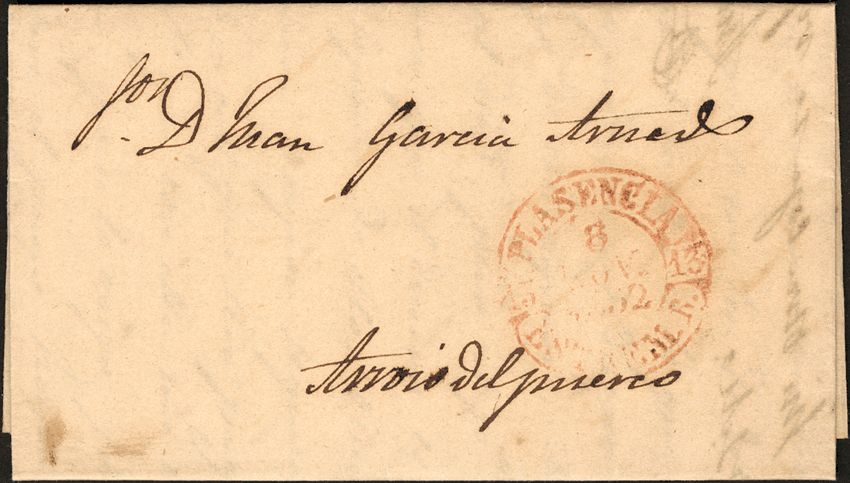 Sor
D Juan Garcia Arnedo
PLASENCIA
8
NOV.
1852
13
EXTREM.R.
Arroio del puerco